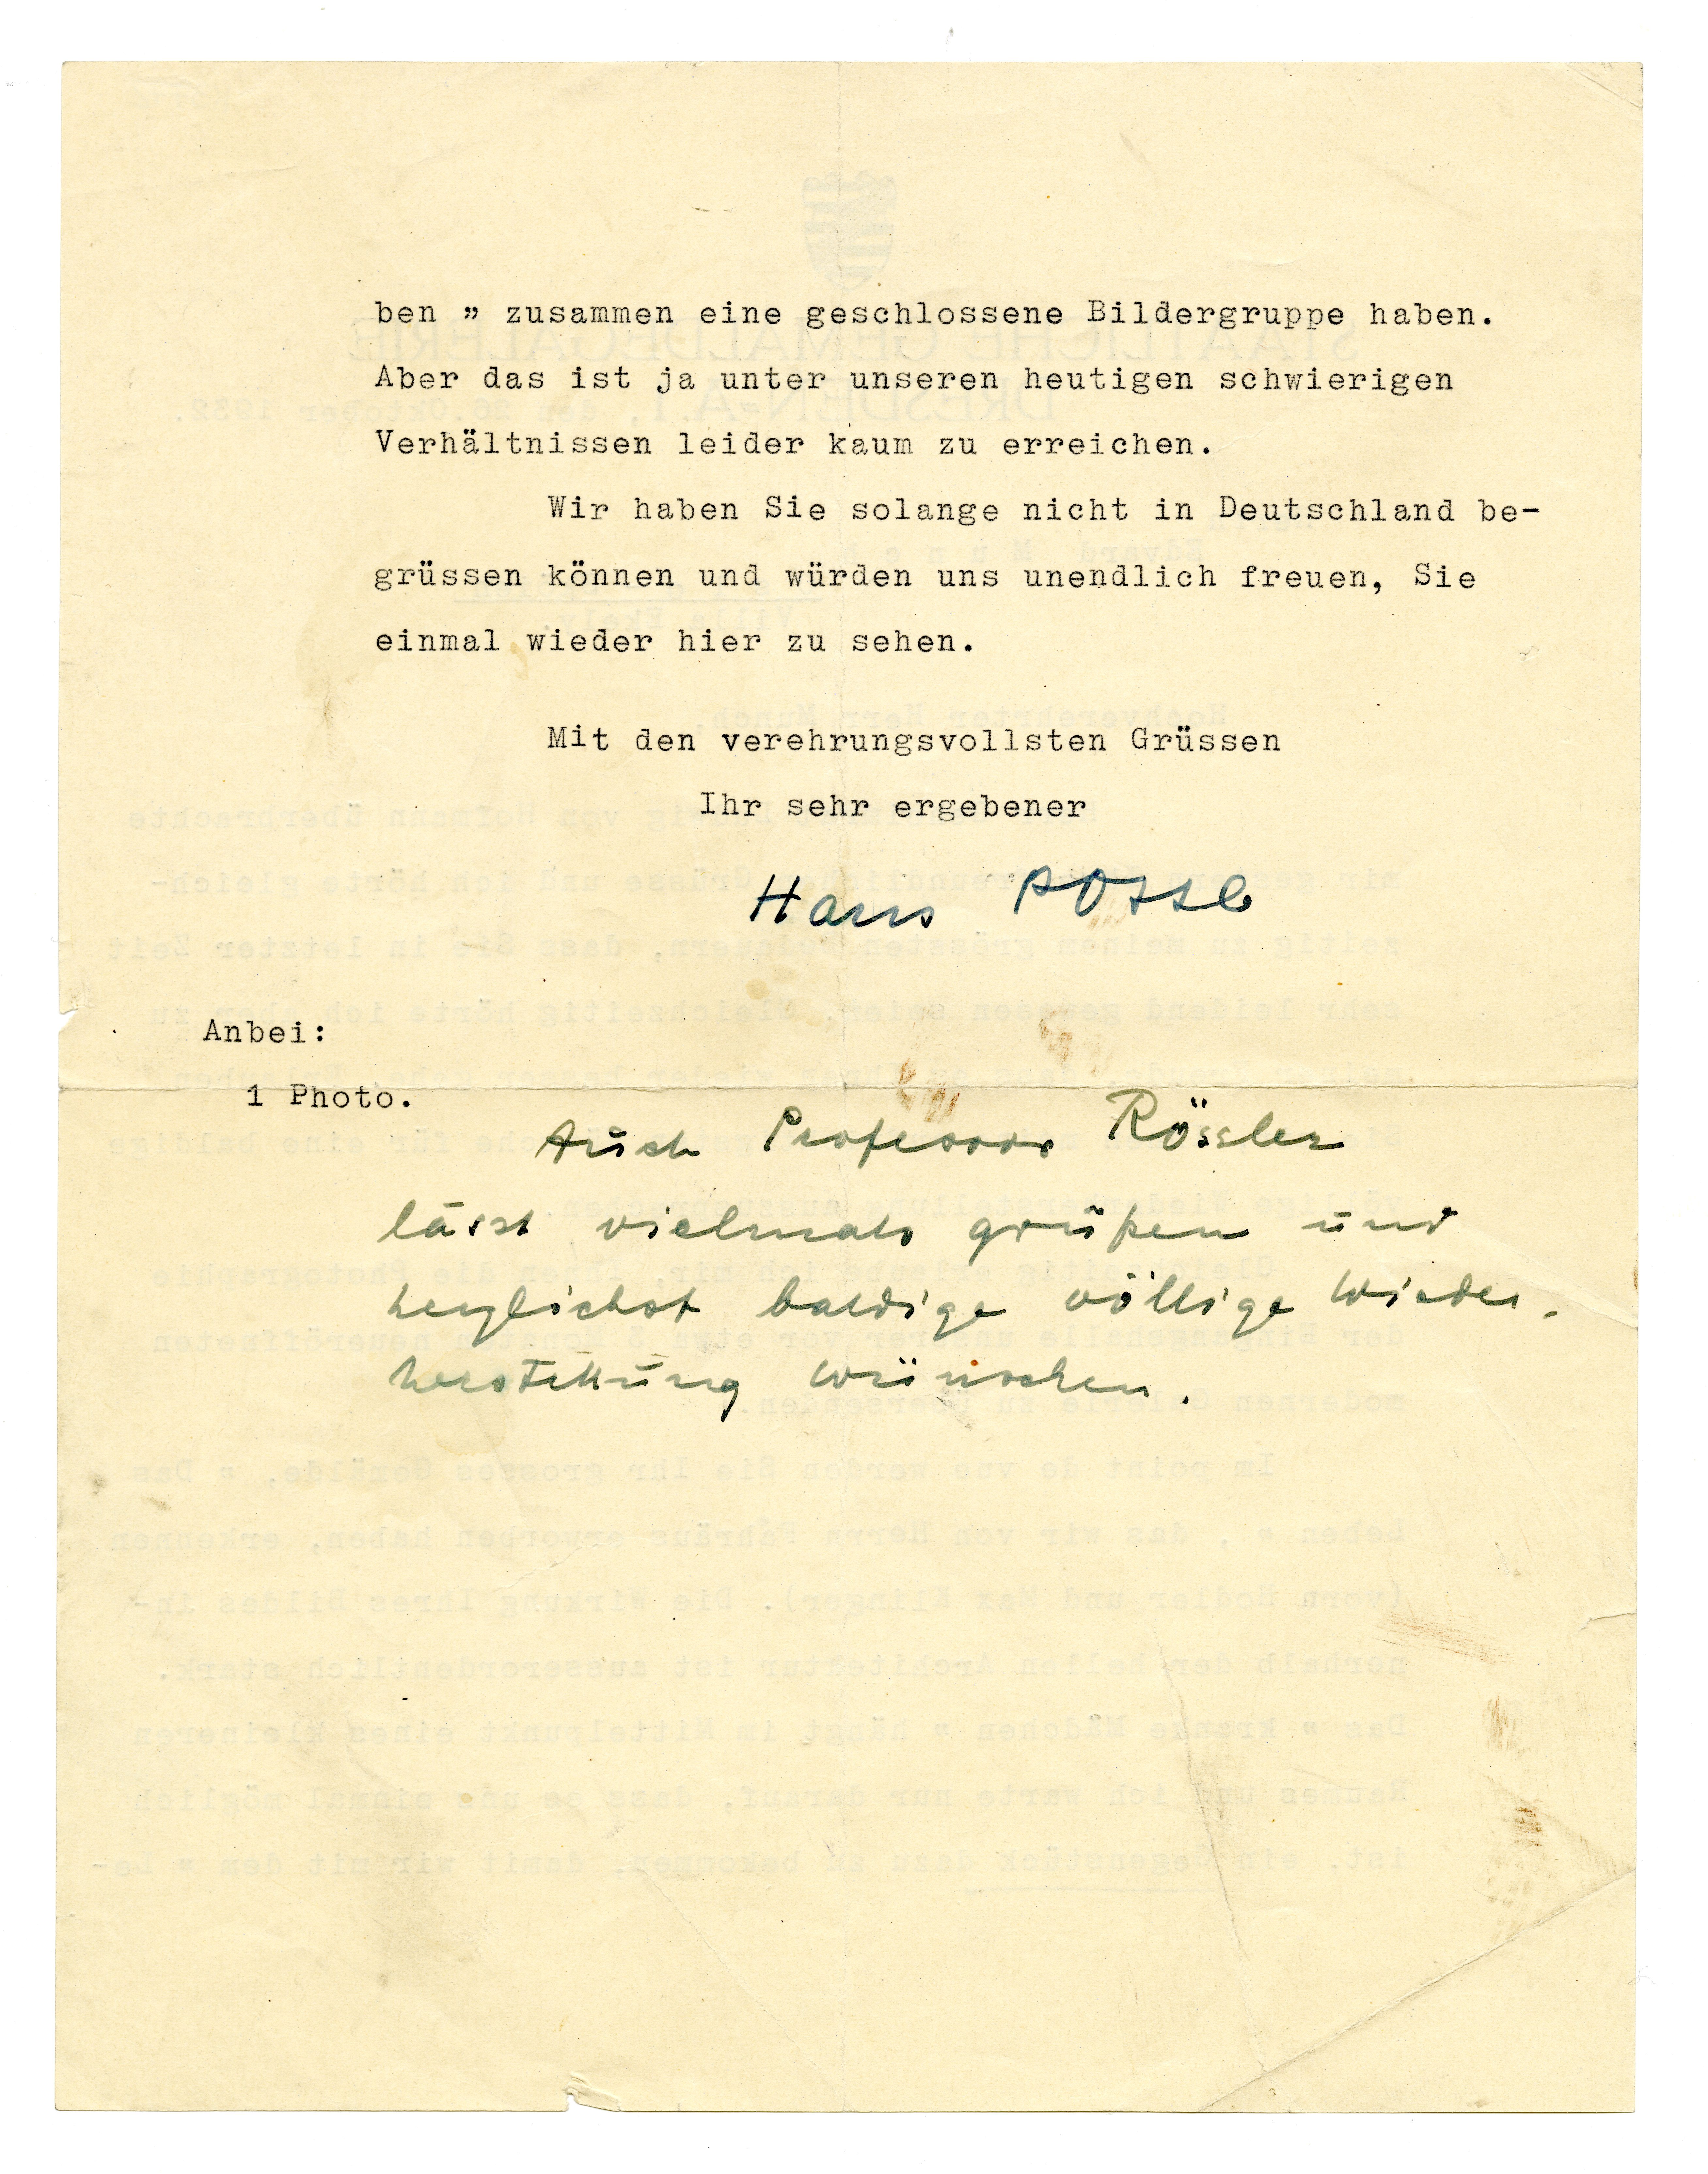 ben „ zusammen eine geschlossene Bildergruppe haben.
Aber das ist ja unter unseren heutigen schwierigen
Verhältnissen leider kaum zu erreichen.
Wir haben Sie solange nicht in Deutschland be-
grüssen können und würden uns unendlich freuen, Sie
einmal wieder hier zu sehen.
Mit den verehrungsvollsten Grüssen
Ihr sehr ergebener
Hans Posse
Anbei:
1 Photo.
Auch Professor Rössler
lässt vielmals grüßen und
herzlichst baldige völlige Wieder-
herstellung wünschen.